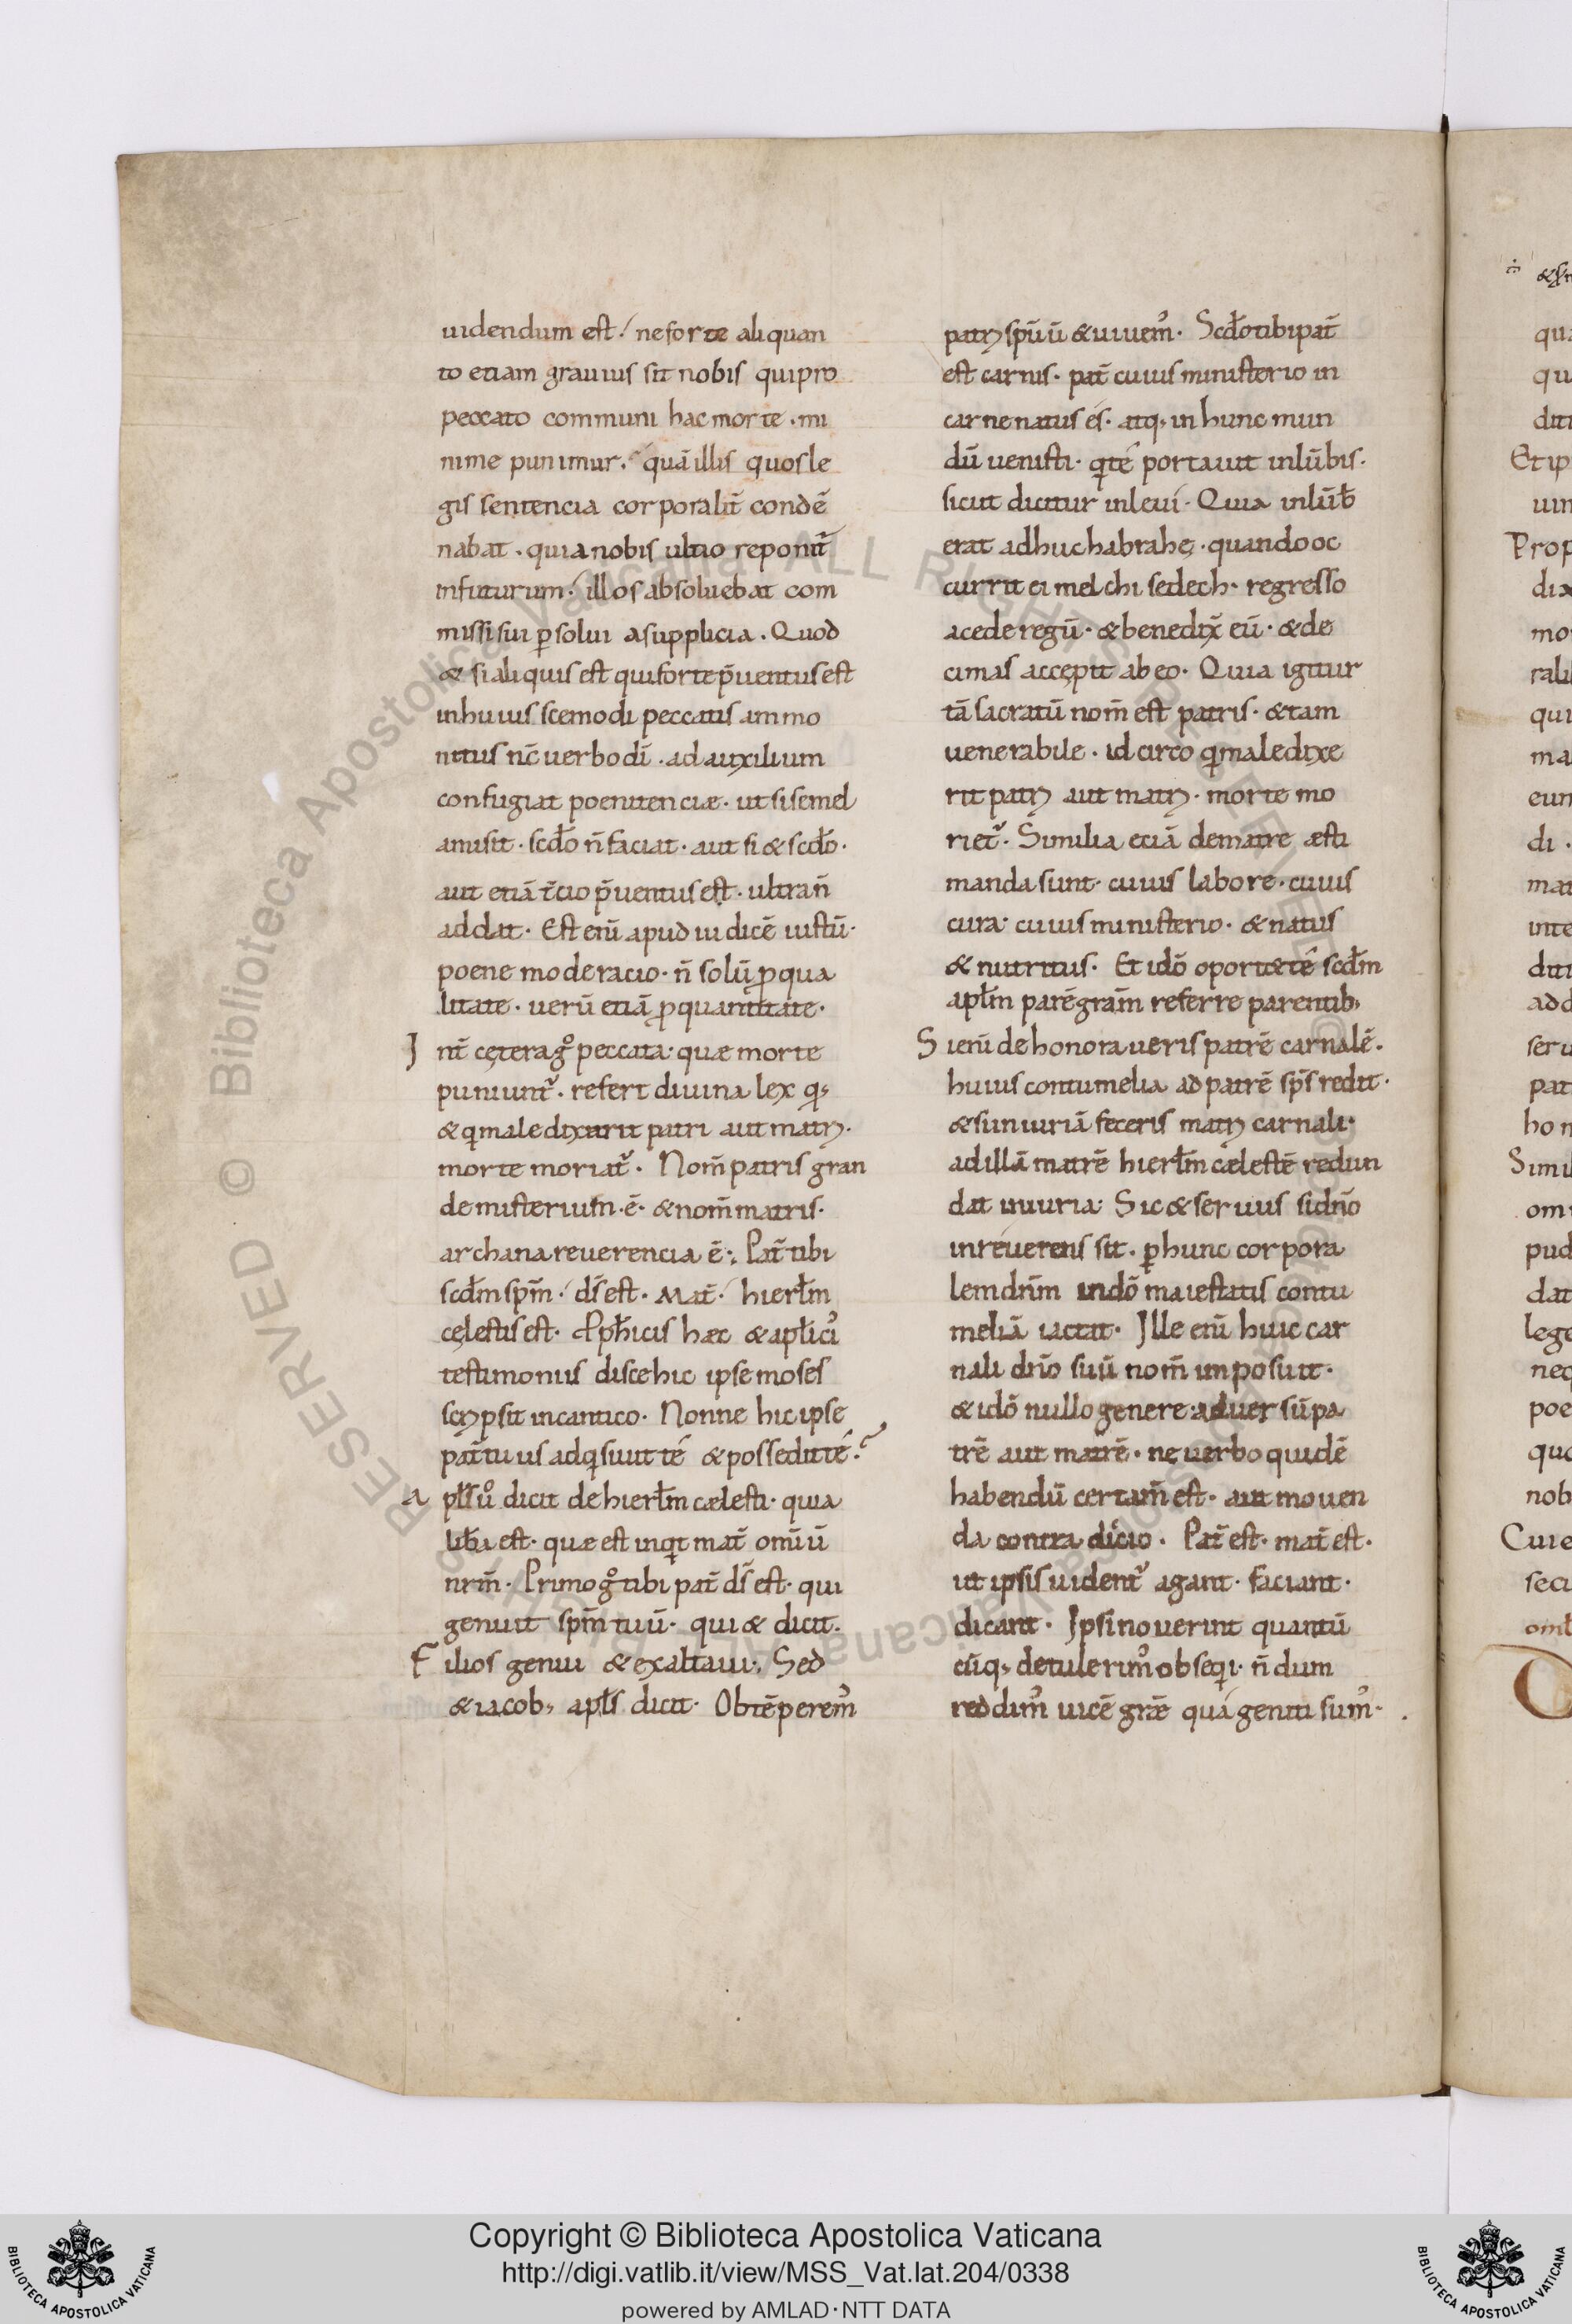 uidendum est! neforte aliquan
to etiam grauius sit nobis quipro
peccato communi hac morte . mi
nime punimur. quā illis quosle
gis sentencia corporalit̄ condē
nabat . quia nobis ultio reponit̄
infuturum! illos absoluebat com
missi sui p̱solui asupplicia . Quod
& si aliquis est quiforte p̄uentus est
inhuius scemodi peccatis ammo
nitus nc̄ uerbo dī . ad auxilium
confugiat poenitenciæ · ut sisemel
amisit · scd̄o n̄ faciat · aut si & scd̄o ·
aut etiā t̄cio p̄uentus est · ultra n̄
addat · Est eni̅ apud iudicē iustū ·
poene moderacio · n̄ solū ꝓ qua
litate · uerū etiā ꝓ quantitate ·
J nt̄ cęteragͦ peccata: quæ morte
puniunt᷑ . refert diuina lex q̱;
& q̱ maledixerit patri aut matꝝ ·
morte moriat᷑ · Nom̄ patris gran
de misterium · ē · & nom̄ matris ·
archana reuerencia ē ·, Pat̄ tibi
scd̄m sp̄m ! d̄s est · Mat̄ ! hierl̄m
cęlestis est · Ꝓph̄icis hæc & apl̄icis
testimoniis disce hic ipse moses
scꝝpsit incantico · Nonne hic ipse
pat̄ tuus adq̱suiut té & possedit té?
a pl̄s uͦ dicit de hierl̄m cælesti · quia
lib̄a est · quæ est inq̱t mat̄ omi̅ū
nrm̄ · Primo gͦ tibi pat̄ d̄s est · qui
genuit sp̄m tuū · qui & dicit ·
F ilios genui & exaltaui ·, Sed
& iacob; apl̄s dicit · Obtēperem᷒
patꝝ sp̄uū & uiuem᷒ · Scd̄o tibi pat̄
est carnis · pat̄ cuius ministerio in
carne natus és · atq; in hunc mun
dū uenisti · q̱ té portauit inlūbis ·
sicut dicitur inleui · Quia inlūb̄
erat adhuc habrahę · quando oc
currit ei melchisedech · regresso
acede regū · & benedix̄ eū · & de
cimas accępit ab eo · Quia igitur
tā sacratū nom̄ est patris · & tam
uenerabile · idcirco q̱ maledixe
rit patꝝ aut matꝝ · morte mo
riet᷑ · Similia eciā dematre æsti
manda sunt · cuius labore · cuius
cura: cuius ministerio · & natus
& nutritus · Et idō oportet té scd̄m
apl̄m parēgram̄ referre parentib;
S i eni̅ dehonoraueris patrē carnalē ·
huius contumelia ad patrē sp̄s redit ·
& si iniuriā feceris matꝝ carnali ·
ad illā matrē hierl̄m cælestē redun
dat iniuria: Sic & seruus si dn̄o
inreuerens sit · p̱ hunc corpora
lem dn̄m indō maiestatis contu
meliā iactat · Jlle eni̅ huic car
nali dn̄o suū nom̄ imposuit ·
& idō nullo genere aduersū pa
trē aut matrē · nę uerbo quidē
habendū certam̄ est · aut mouen
da contradicio · Pat̄ est · mat̄ est ·
ut ipsis uident᷑ agant · faciant ·
dicant · Jpsi nouerint quantū
cūq; detulerim᷒ obseq̱i · n̄dum
reddim᷒ uicē gr̄æ quā geniti sum᷒ ·
Copyright © Biblioteca Apostolica Vaticana
http://digi.vatlib.it/view/MSS_Vat.lat.204/0338
powered by AMLAD·NTT DATA
BIBLIOTECA APOSTOLICA VATICANA
BIBLIOTECA APOSTOLICA VATICANA